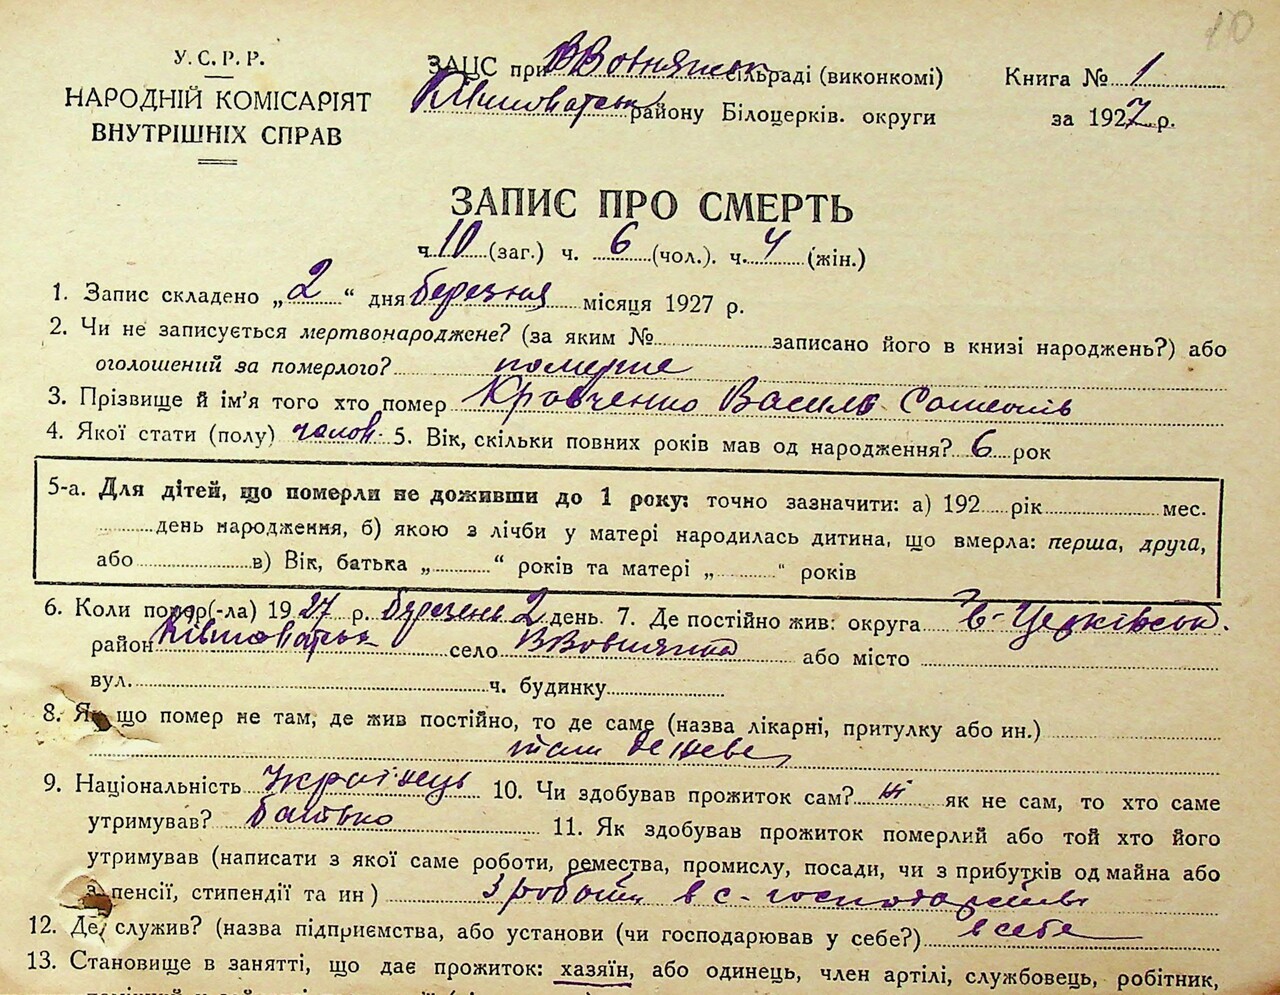 10
У. С. Р. Р.
НАРОДНІЙ КОМІСАРІЯТ
ВНУТРІШНІХ СПРАВ
ЗАЦС при ВВовнянськ сільраді (виконкомі)
Ківшоватськ району Білоцерків. округи
Книга № 1
за 1927 р.
ЗАПИС ПРО СМЕРТЬ
ч. 10 (заг.) ч. 6 (чол.). ч. 4 (жін.)
1. Запис складено „ 2 “ дня березня місяця 1927 р.
2. Чи не записується мертвонароджене? (за яким № записано його в книзі народжень?) або
оголошений за померлого? померше
3. Прізвище й ім'я того хто помер Кравченко Василь
4. Якої стати (полу) чолов. 5. Вік, скільки повних років мав од народження? 6 рок
5-а. Для дітей, що померли не доживши до 1 року: точно зазначити: а) 192 рік мес.
день народження, б) якою з лічби у матері народилась дитина, що вмерла: перша, друга,
або в) Вік, батька „ “ років та матері „ “ років
6. Коли помер(-ла) 1927 р. березень 2 день. 7. Де постійно жив: округа Б-Церківськ.
район Ківшоватськ село ВВовнянка або місто
вул. ч. будинку
8. Як що помер не там, де жив постійно, то де саме (назва лікарні, притулку або ин.)
там де живе
9. Національність Українець 10. Чи здобував прожиток сам? ні як не сам, то хто саме
утримував? батько 11. Як здобував прожиток померлий або той хто його
утримував (написати з якої саме роботи, ремества, промислу, посади, чи з прибутків од майна або
з пенсії, стипендії та ин) З роботи в с-господарстві
12. Де служив? (назва підприємства, або установи (чи господарював у себе?) в себе
13. Становище в занятті, що дає прожиток: хазяїн, або одинець, член артілі, службовець, робітник,